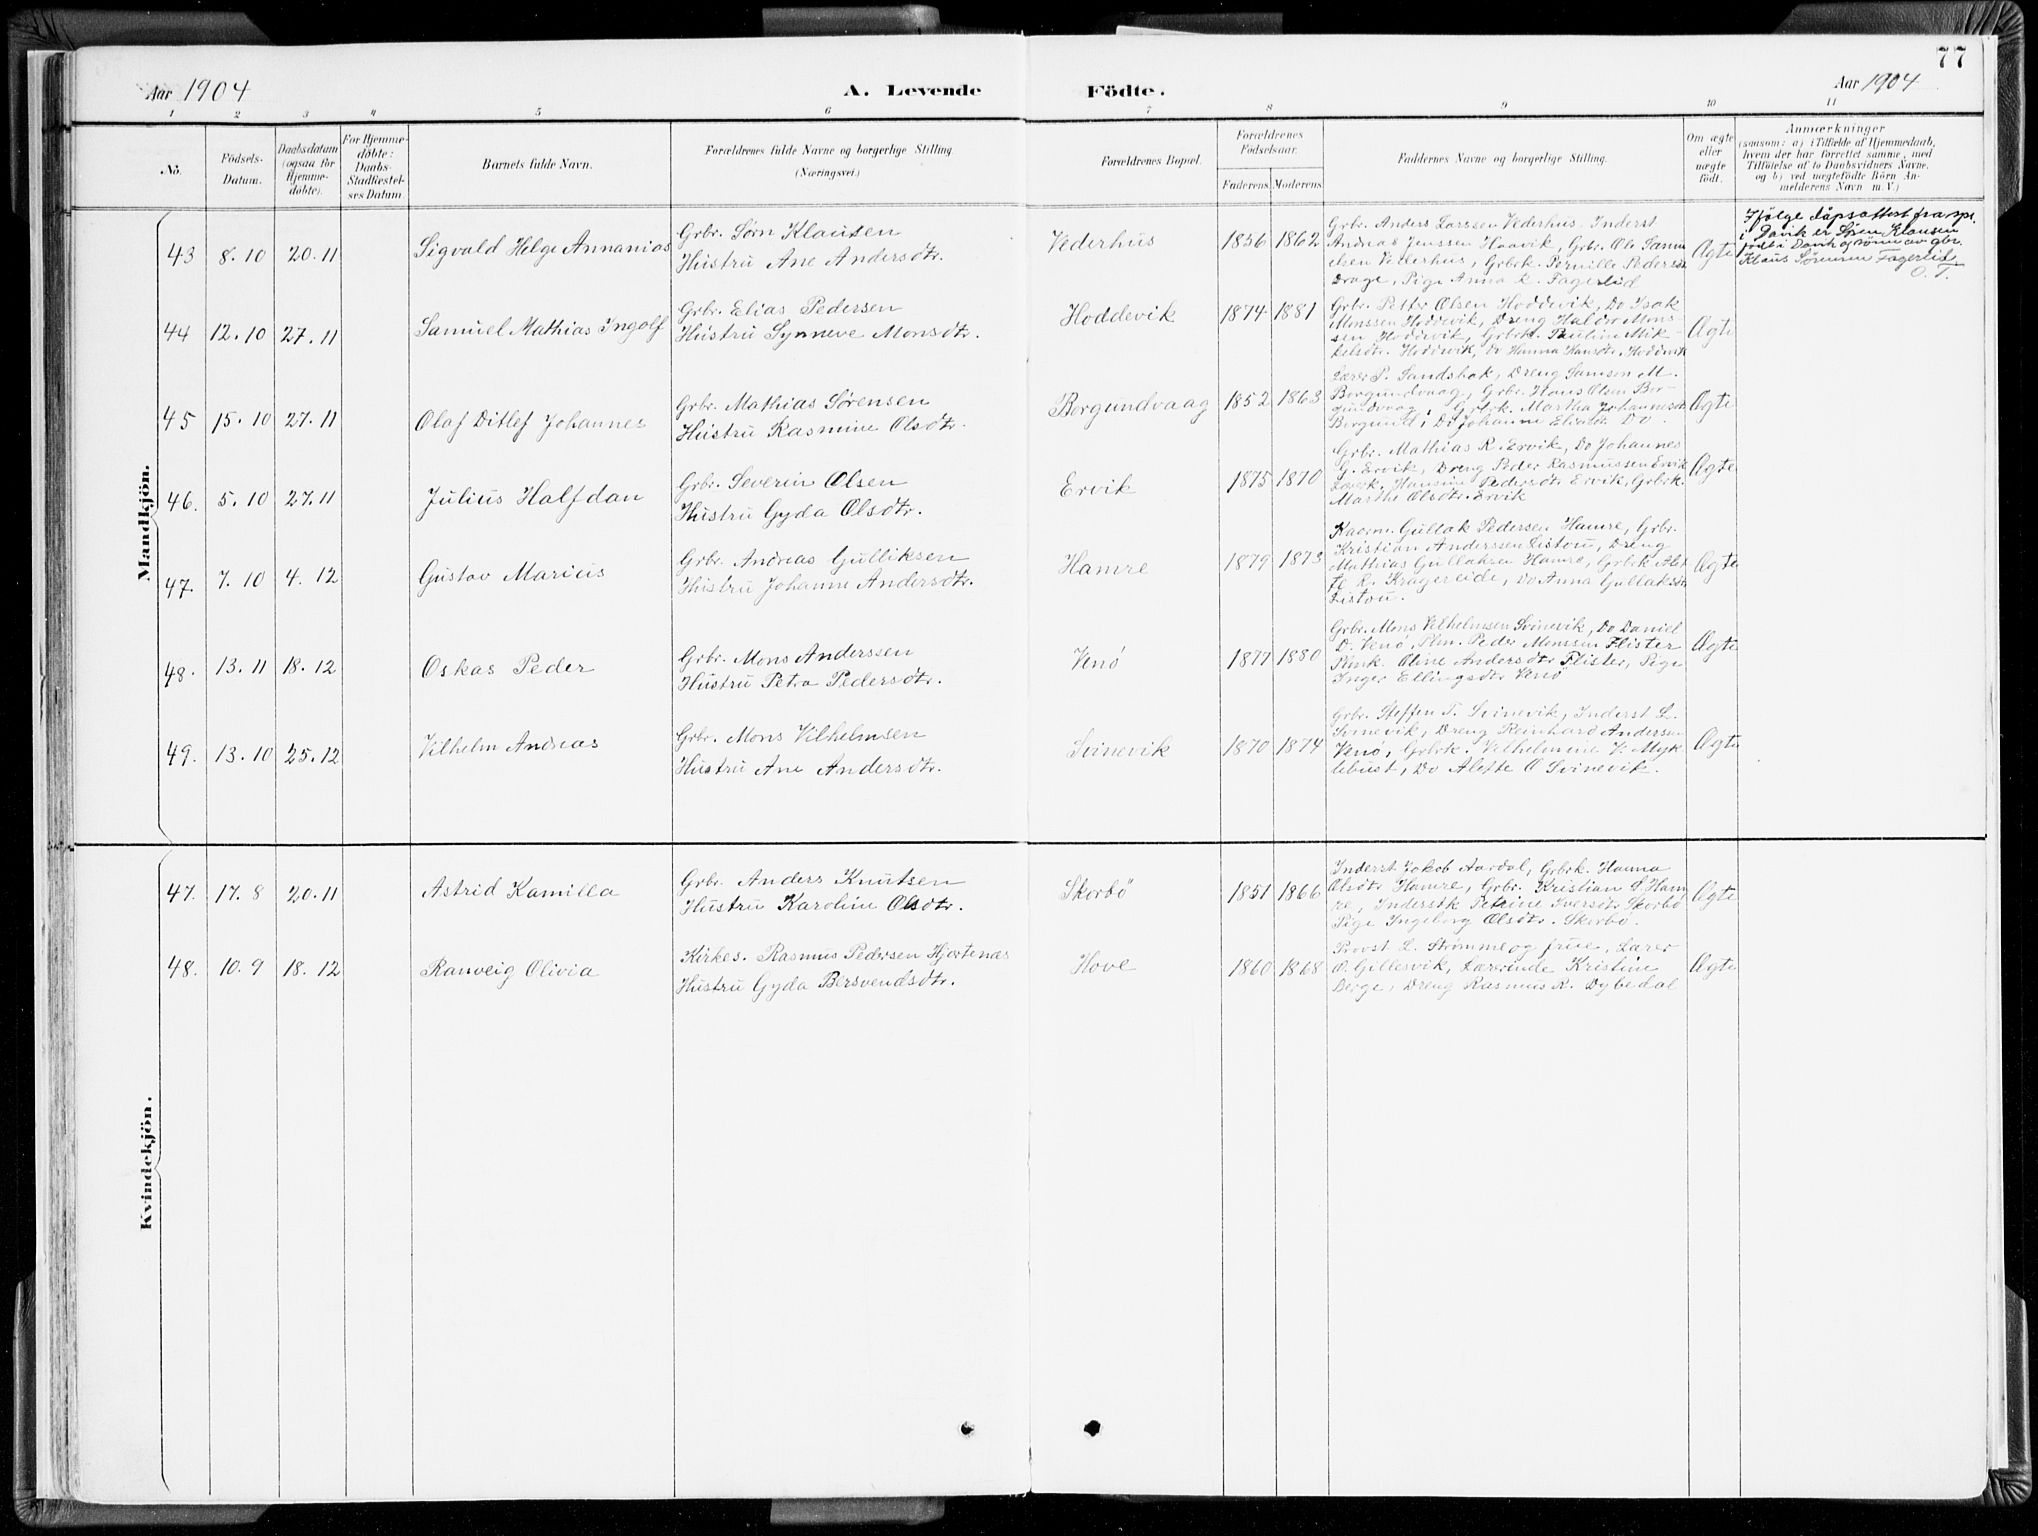 77
Aar 1904
A. Levende
Födte.
Aar 1904
1 2 3 4 5 6 7 8 9 10 11
No.
Födsels-
Datum.
Daabsdatum
(ogsaa for
Hjemme-
döbte).
For Hjemme-
döbte:
Daabs-
Stadfæstel-
ses Datum
Barnets fulde Navn.
Forældrenes fulde Navne og borgerlige Stilling.
(Næringsvei.)
Forældrenes Bopæl.
Forældrenes
Födselsaar.
Faderens
Moderens
Faddernes Navne og borgerlige Stilling.
Om ægte
eller
uægte
födt.
Anmærkninger
(saasom: a) i Tilfælde af Hjemmedaab,
hvem der har forrettet samme, med
Tilföielse af to Daabsvidners Navne.
og b) ved uægtefödte Börn An-
melderens Navn m. V.)
Mandkjön.
43 8.10 20.11
Sigvald Helge Annanias
Grbr. Sørn Klausen
Hustru Ane Andersdtr.
Vederhus
1856 1862
Grbr. Anders Larssen Vederhus, Inderst
Andreas Jenssen Haavik, Grbr. Ole Samu
elsen Vederhus, Grbrk. Pernille Pedersdtr
Drage, Pige Anna L. Fagerlid
Ægte
Ifølge dåpsattest fra spr.
i Davik er Søren Klausen
født i Davik og sønn av gbr.
Klaus Sørensen Fagerlid
O. T.
44 12.10 27.11
Samuel Mathias Ingolf
Grbr. Elias Pedersen
Hustru Synneve Monsdtr.
Hoddevik
1874 1881
Grbr. Petter Olsen Hoddevik, Do Isak
Monssen Hoddevik, Dreng Haldor Mons-
sen Hoddevik, Grbrk. Pauline Mik-
kelsdtr. Hoddevik, Do Hanna Hansdtr. Hoddevik
Ægte
45 15.10 27.11
Olaf Ditlef Johannes
Grbr. Mathias Sørensen
Hustru Rasmine Olsdtr.
Borgundvaag
1852 1863
Lærer P. Sandsbak, Dreng Samson M.
Borgundvaag, Grbr. Hans Olsen Bor-
gundvaag, Grbrk. Martha Johannesdtr
Borgund, Do Johanne Eliasdtr Do.
Ægte
46. 5.10 27.11
Julius Halfdan
Grbr. Severin Olsen
Hustru Gyda Olsdtr.
Ervik
1875 1870
Grbr. Mathias R. Ervik, Do Johannes
G. Ervik, Dreng Peder Rasmussen Ervik
Hansine Pedersdtr Ervik, Grbrk.
Marthe Olsdtr. Ervik
Ægte
47. 7.10 4.12
Gustav Marius
Grbr. Andreas Gulliksen
Hustru Johanne Andersdtr.
Hamre
1879 1873
Gullak Pedersen Hamre, Grbr.
Kristian Anderssen Listou, Dreng
Mathias Gullaksen Hamre, Grbrk Alet
te R. Kragereide, Do Anna Gullaksdtr
Listou.
Ægte
48. 13.11 18.12
Oskas Peder
Grbr. Mons Anderssen
Hustru Petra Pedersdtr.
Venø
1877 1880
Grbr. Mons Vilhelmsen Svinevik, Do Daniel
D. Venø, Plm. Peder Monssen Flister
Plmk. Oline Andersdtr Flister, Pige
Inger Ellingsdtr Venø
Ægte
49. 13.10 25.12
Vilhelm Andreas
Grbr. Mons Vilhelmsen
Hustru Ane Andersdtr.
Svinevik
1870 1874
Grbr. Steffen T. Svinevik, Inderst L.
Svinevik, Dreng Reinhard Andersen
Venø, Grbrk. Vilhelmine V. Myk
lebust, Do Alette O Svinevik.
Ægte
Kvindekjön.
47. 17.8 20.11
Astrid Kamilla
Grbr. Anders Knutsen
Hustru Karoline Olsdtr.
Skorbö
1851 1866
Inderst Jakob Aardal, Grbrk. Hanna
Olsdtr Hamre, Grbr. Kristian S. Ham
re, Inderstk Petrine Iversdtr Skorbö
Pige Ingeborg Olsdtr. Skorbö.
Ægte
48. 10.9 18.12
Ranveig Olivia
Kirkes. Rasmus Pedersen Hjortenæs
Hustru Gyda Bersvendsdtr.
Hove
1860 1868
Provst L. Strømme og frue, Lærer
O. Gillesvik, Lærerinde Kristine
Berge, Dreng Rasmus R. Dybedal
Ægte